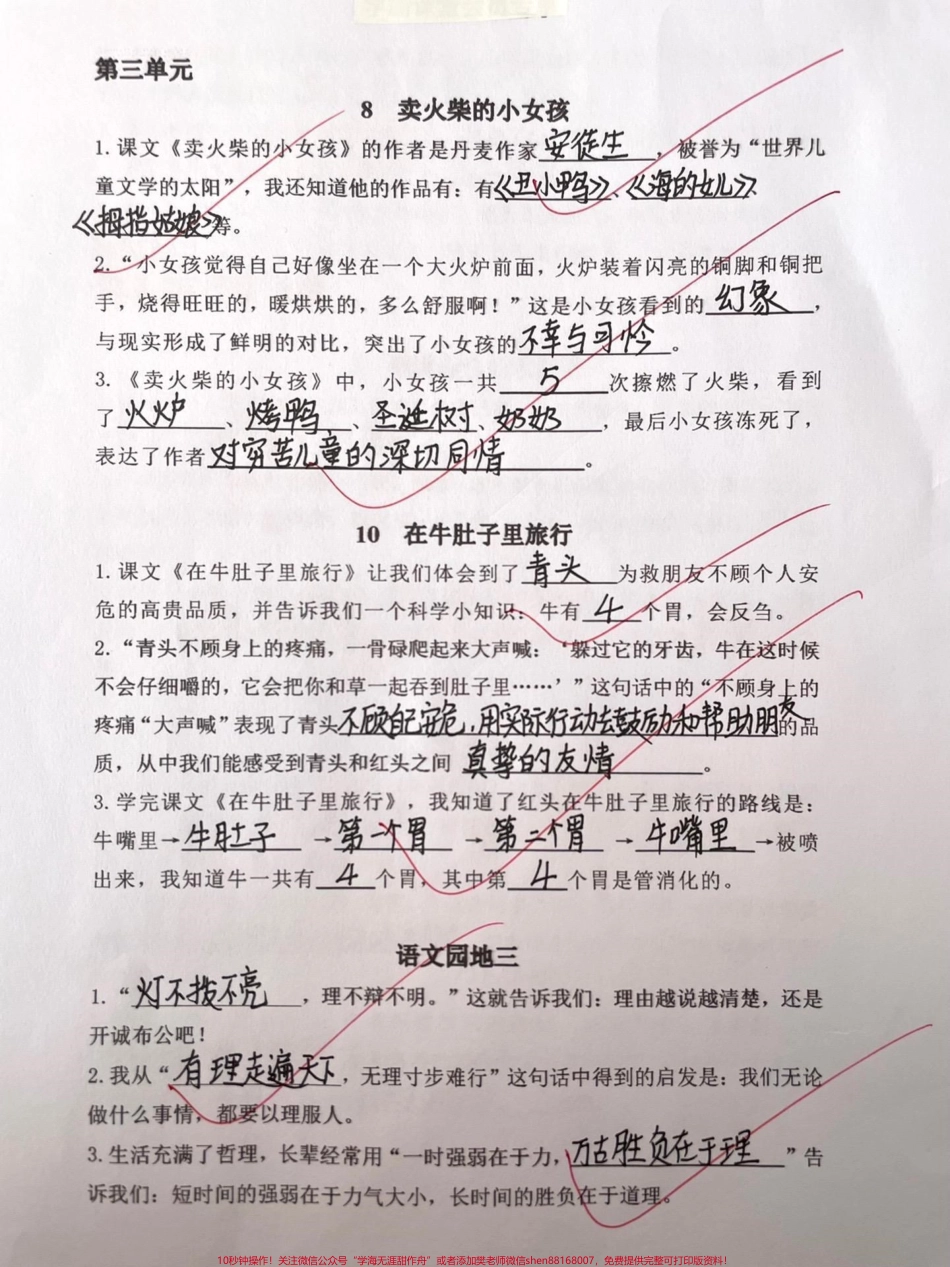 第三单元
8 卖火柴的小女孩
1.课文《卖火柴的小女孩》的作者是丹麦作家安徒生，被誉为“世界儿
童文学的太阳”，我还知道他的作品有：有《丑小鸭》、《海的女儿》、
《拇指姑娘》等。
2.“小女孩觉得自己好像坐在一个大火炉前面，火炉装着闪亮的铜脚和铜把
手，烧得旺旺的，暖烘烘的，多么舒服啊！”这是小女孩看到的幻象，
与现实形成了鲜明的对比，突出了小女孩的不幸与可怜。
3.《卖火柴的小女孩》中，小女孩一共5次擦燃了火柴，看到
了火炉、烤鸭、圣诞树、奶奶，最后小女孩冻死了，
表达了作者对穷苦儿童的深切同情。
10 在牛肚子里旅行
1.课文《在牛肚子里旅行》让我们体会到了青头为救朋友不顾个人安
危的高贵品质，并告诉我们一个科学小知识：牛有4个胃，会反刍。
2.“青头不顾身上的疼痛，一骨碌爬起来大声喊：‘躲过它的牙齿，牛在这时候
不会仔细嚼的，它会把你和草一起吞到肚子里……’”这句话中的“不顾身上的
疼痛“大声喊”表现了青头不顾自己安危，用实际行动去鼓励和帮助朋友的品
质，从中我们能感受到青头和红头之间真挚的友情。
3.学完课文《在牛肚子里旅行》，我知道了红头在牛肚子里旅行的路线是：
牛嘴里→牛肚子→第一个胃→第二个胃→牛嘴里→被喷
出来，我知道牛一共有4个胃，其中第4个胃是管消化的。
语文园地三
1.“灯不拨不亮，理不辩不明。”这就告诉我们：理由越说越清楚，还是
开诚布公吧！
2.我从“有理走遍天下，无理寸步难行”这句话中得到的启发是：我们无论
做什么事情，都要以理服人。
3.生活充满了哲理，长辈经常用“一时强弱在于力，万古胜负在于理”告
诉我们：短时间的强弱在于力气大小，长时间的胜负在于道理。
10秒钟操作！关注微信公众号“学海无涯甜作舟”或者添加樊老师微信shen88168007，免费提供完整可打印版资料！